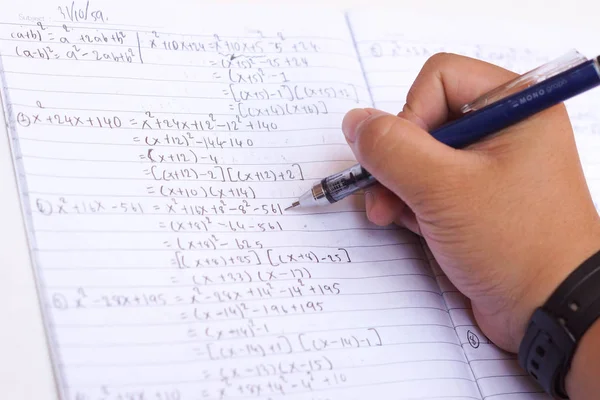 31/10/59.
(a+b)² = a² + 2ab + b²
(a-b)² = a² - 2ab + b²
x² + 10x + 24 = x² + 10x + 5² - 5² + 24
= (x+5)² - 25 + 24
= (x+5)² - 1
= [(x+5)-1][(x+5)+1]
= [(x+4)(x+6)]
x² + 24x + 140 = x² + 24x + 12² - 12² + 140
= (x+12)² - 144 + 140
= (x+12)² - 4
= [(x+12)-2][(x+12)+2]
= (x+10)(x+14)
x² + 16x - 561 = x² + 16x + 8² - 8² - 561
= (x+8)² - 64 - 561
= (x+8)² - 625
= [(x+8)+25][(x+8)-25]
= (x+33)(x-17)
x² - 28x + 195 = x² - 28x + 14² - 14² + 195
= (x-14)² - 196 + 195
= (x-14)² - 1
= [(x-14)+1][(x-14)-1]
= (x-13)(x-15)
= x² + 8x + 4² - 4² + 10
MONO graph